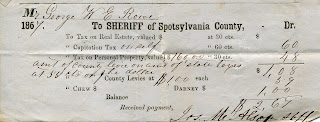 Mr George W E Rowe
1867 To SHERIFF of Spotsylvania County, Dr.
To Tax on Real Estate, valued $ at 30 cts.
" Capitation Tax on self " 60 cts. 60
" Tax on Personal Property, valued $160.00 " 30 cts. 48
amt of county levy on amt of state taxes 1,08
at 38 cts on the dollar
County Levies at $1.00 each 1.00
" CHEW $ DABNEY $
Balance $2.67
Received payment,
Jos.